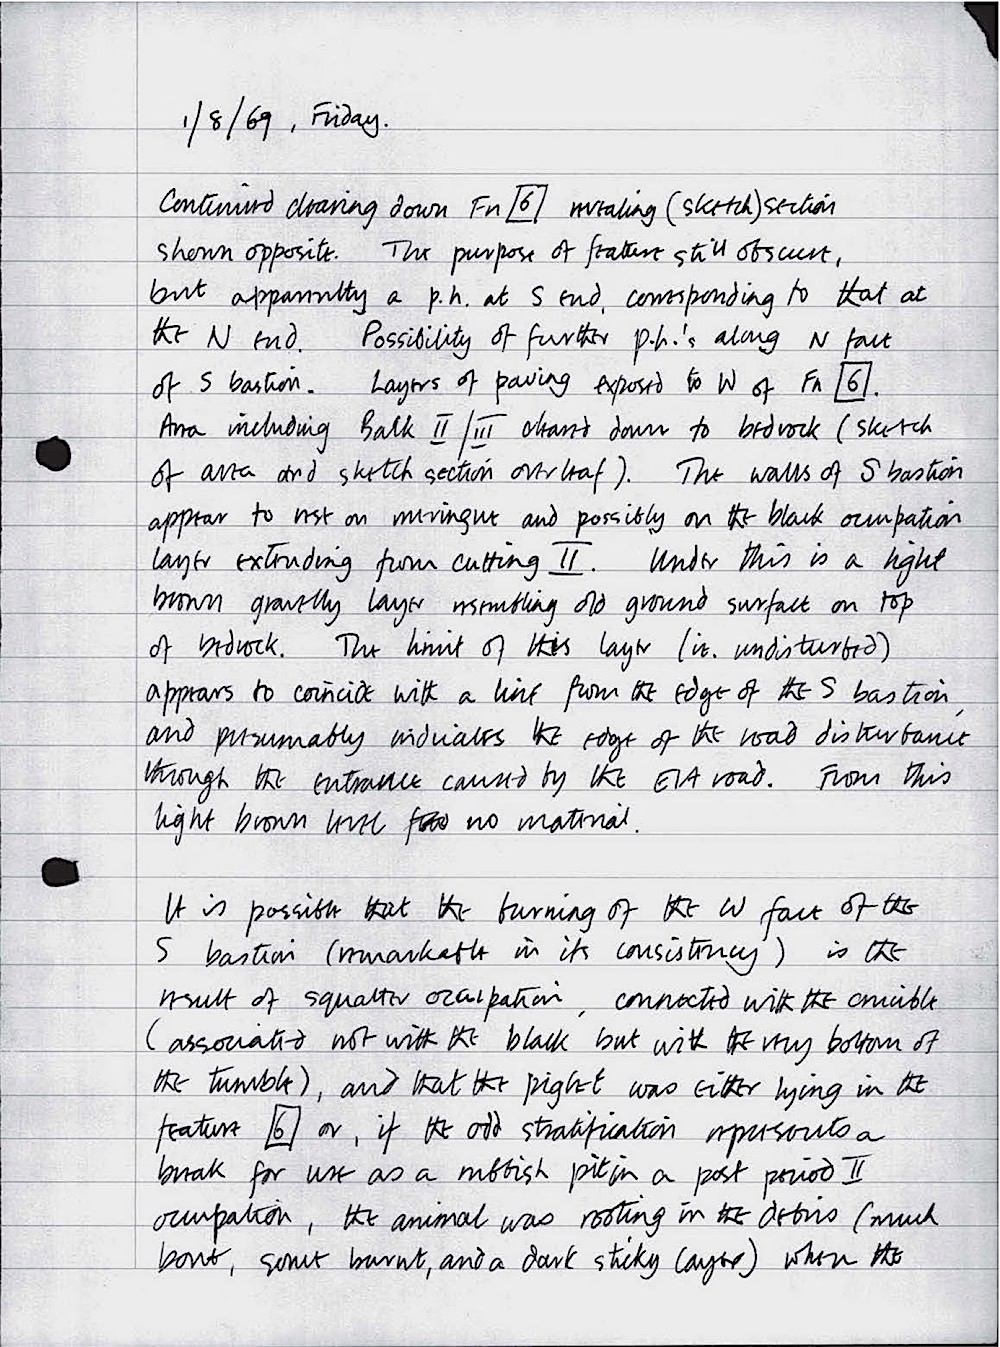 1/8/69, Friday.
Continued clearing down Fn [6] revealing (sketch) section
shown opposite. The purpose of feature still obscure,
but apparently a p.h. at S end, corresponding to that at
the N end. Possibility of further p.h.'s along N face
of S bastion. Layers of paving exposed to W of Fn [6].
Area including Balk II/III cleared down to bedrock (sketch
of area and sketch section overleaf). The walls of S bastion
appear to rest on meringue and possibly on the black occupation
layer extending from cutting II. Under this is a light
brown gravelly layer resembling old ground surface on top
of bedrock. The limit of this layer (ie. undisturbed)
appears to coincide with a line from the edge of the S bastion,
and presumably indicates the edge of the road disturbance
through the entrance caused by the EIA road. From this
light brown level no material.
It is possible that the burning of the W face of the
S bastion (remarkable in its consistency) is the
result of squatter occupation, connected with the crucible
(associated not with the black but with the very bottom of
the tumble), and that the piglet was either lying in the
feature [6] or, if the odd stratification represents a
break for use as a rubbish pit in a post period II
occupation, the animal was rooting in the debris (much
bone, some burnt, and a dark sticky layer) when the